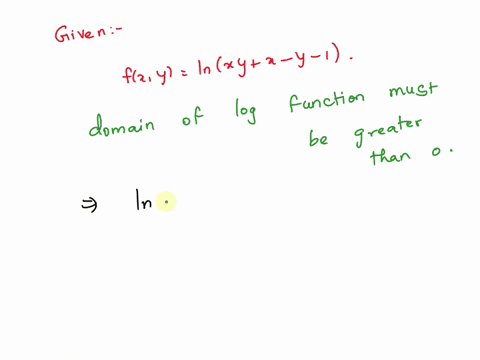 Given:-
f(x,y) = ln(xy+x-y-1).
domain of log function must
be greater
than 0.
⇒ ln